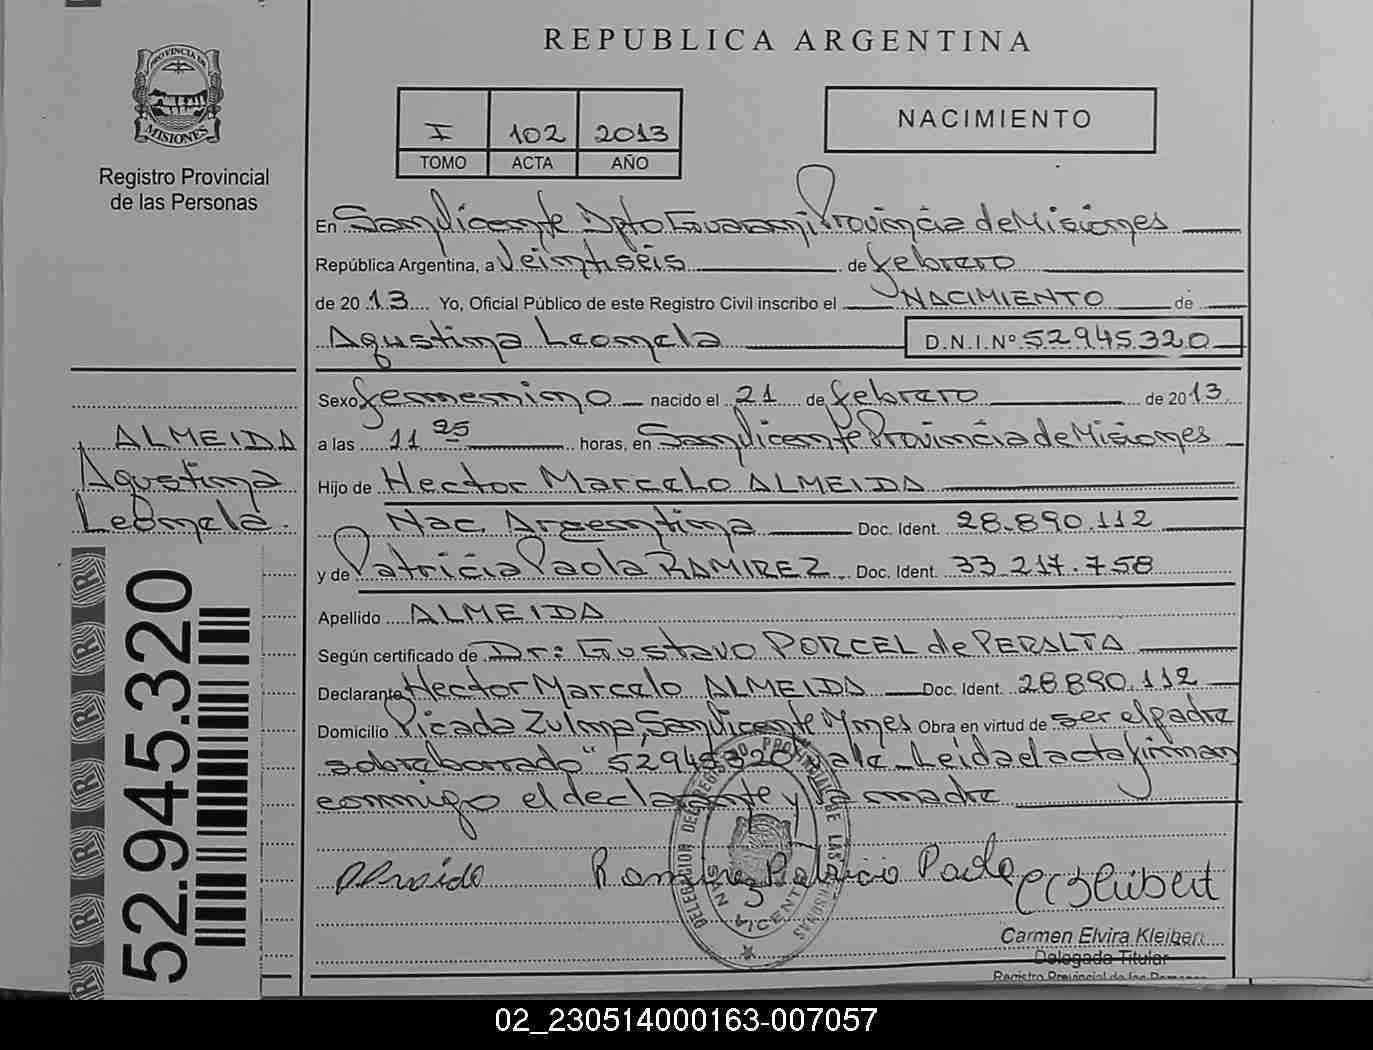 REPUBLICA ARGENTINA
PROVINCIA DE
MISIONES
Registro Provincial
de las Personas
I 102 2013
TOMO ACTA AÑO
NACIMIENTO
En San Vicente Dpto Guarani Provincia de Misiones
República Argentina, a Veintiséis de febrero
de 2013 Yo, Oficial Público de este Registro Civil inscribo el NACIMIENTO de
Agustina Leonela D.N.I.Nº 52945320
Sexo femenino nacido el 21 de febrero de 2013
a las 11 25 horas, en San Vicente Provincia de Misiones
Hijo de Hector Marcelo ALMEIDA
Nac. Argentina Doc. Ident. 28.890.112
y de Patricia Paola RAMIREZ Doc. Ident. 33.217.758
Apellido ALMEIDA
Según certificado de Dr: Gustavo PORCEL de PERALTA
Declarante Hector Marcelo ALMEIDA Doc. Ident. 28.890.112
Domicilio Picada Zulma, San Vicente Mnes Obra en virtud de ser el padre
sobreborrado "52945320" vale_Leida el acta firman
conmigo el declarante y la madre
ALMEIDA
Agustina
Leonela.
52.945.320
DELEGACION DEL REGISTRO PROVINCIAL DE LAS PERSONAS
SAN VICENTE
Ramirez Patricia Paola
Carmen Elvira Kleibert
Delegada Titular
Registro Provincial de las Personas
02_230514000163-007057